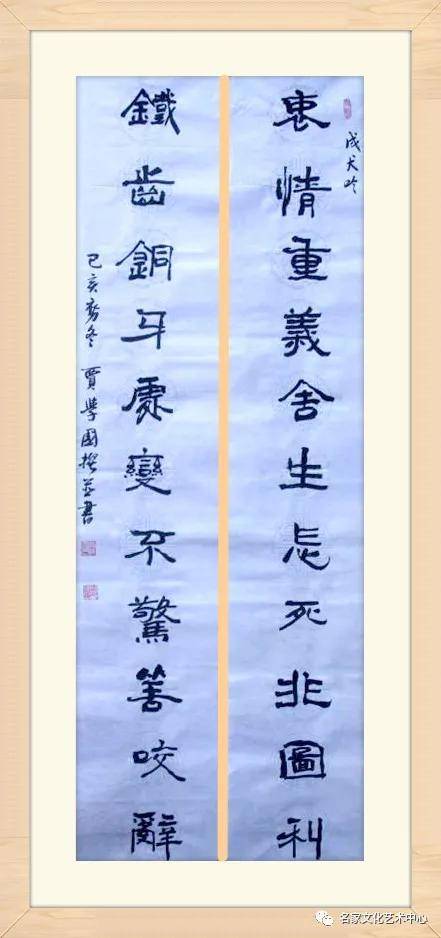 戌犬吟
衷情重義舍生忘死非圖利
鐵齒銅牙處變不驚善咬辭
己亥冬 賈學國撰並書
名家文化艺术中心